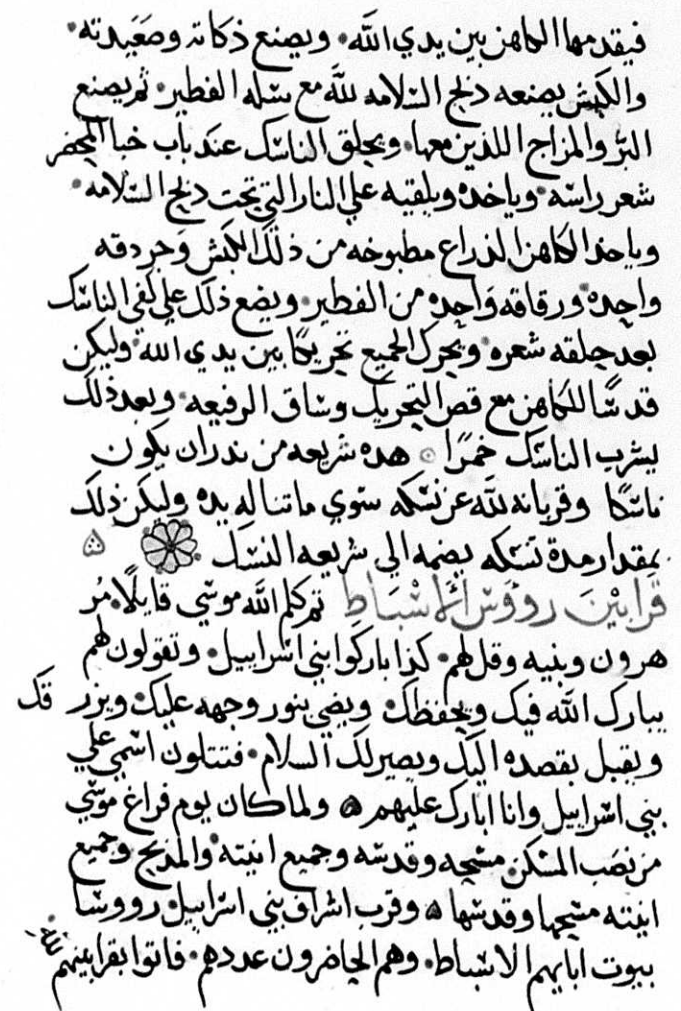 فيقدمها الكاهن بين يدي الله • ويصنع ذكاته وصَعَيدته •
والكَبش يصنعه ذبح السَلامه لله مع سَله الفطير • ثم يصنع
البرّ والمزاج اللذين معها • ويحلق الناسَك عند باب خبا المحضر
شعر راسه • وياخده ويلقيه علي النار التي تحت ذبح السَلامه •
وياخذ الكاهن الذراع مطبوخه من ذلك الكبش وجردقه
واحده • ورقاقه وَاحِده من الفطير • ويضع ذلك علي كفي الناسَك
بعد حلقه شعره • ويحرك الجميع تحريكًا بين يدي الله • وليكن
قدسًا للكاهن مع قص التحريك وساق الرفيعه • وبعد ذلك
يشرب الناسَك خمرًا ۞ هده شريعه من ندر ان يكون
ناسكا وقربانه لله عن نسَكه سَوي ما تناله يده وليكن ذلك
بمقدار مدة نسَكه يضمه الي شريعه النسَك
قَرابيْنَ روُوسَ الاسْبَاط ثم كلم الله موسَي قايلًا • مُر
هرون وبنيه وقل لهم • كذا باركوا بني اسراييل • وتقولون لهم
يبارك الله فيك ويحفظك • ويضي بنور وجهه عليك • ويرر قك
ويقبل بقصده اليك ويصير لك السلام • فتتلون اسَمي علي
بني اسراييل وانا ابارك عليهم ۞ ولما كان يوم فراغ موسَي
من نصَب المسَكن • مسَحه وقدسَه وجميع انيته • والمذبح وجميع
انيته مسَحها وقدسَها ۞ وقرب اشراف بني اسراييل • رووسَا
بيوت ابايهم الاسَباط • وهم الحاضرون عددهم • فاتوا بقرابينهم